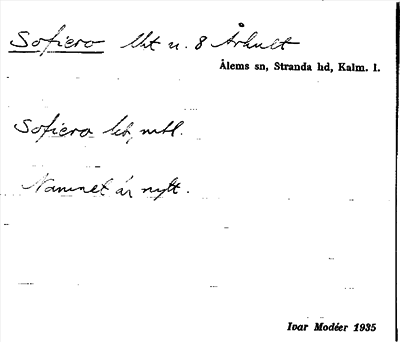 Sofiero lht u. 8 Århult
Ålems sn, Stranda hd, Kalm. l.
Sofiero lht, mtl.
Namnet är nytt.
Ivar Modéer 1935